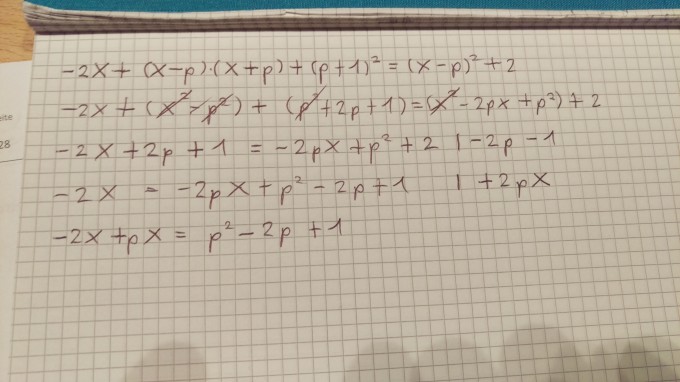 -2x + (x-p)·(x+p) + (p+1)² = (x-p)² + 2
-2x + (x²-p²) + (p²+2p+1) = (x²-2px+p²) + 2
-2x+2p+1 = -2px+p²+2 | -2p-1
-2x = -2px+p²-2p+1 | +2px
-2x+px = p²-2p+1
eite
28